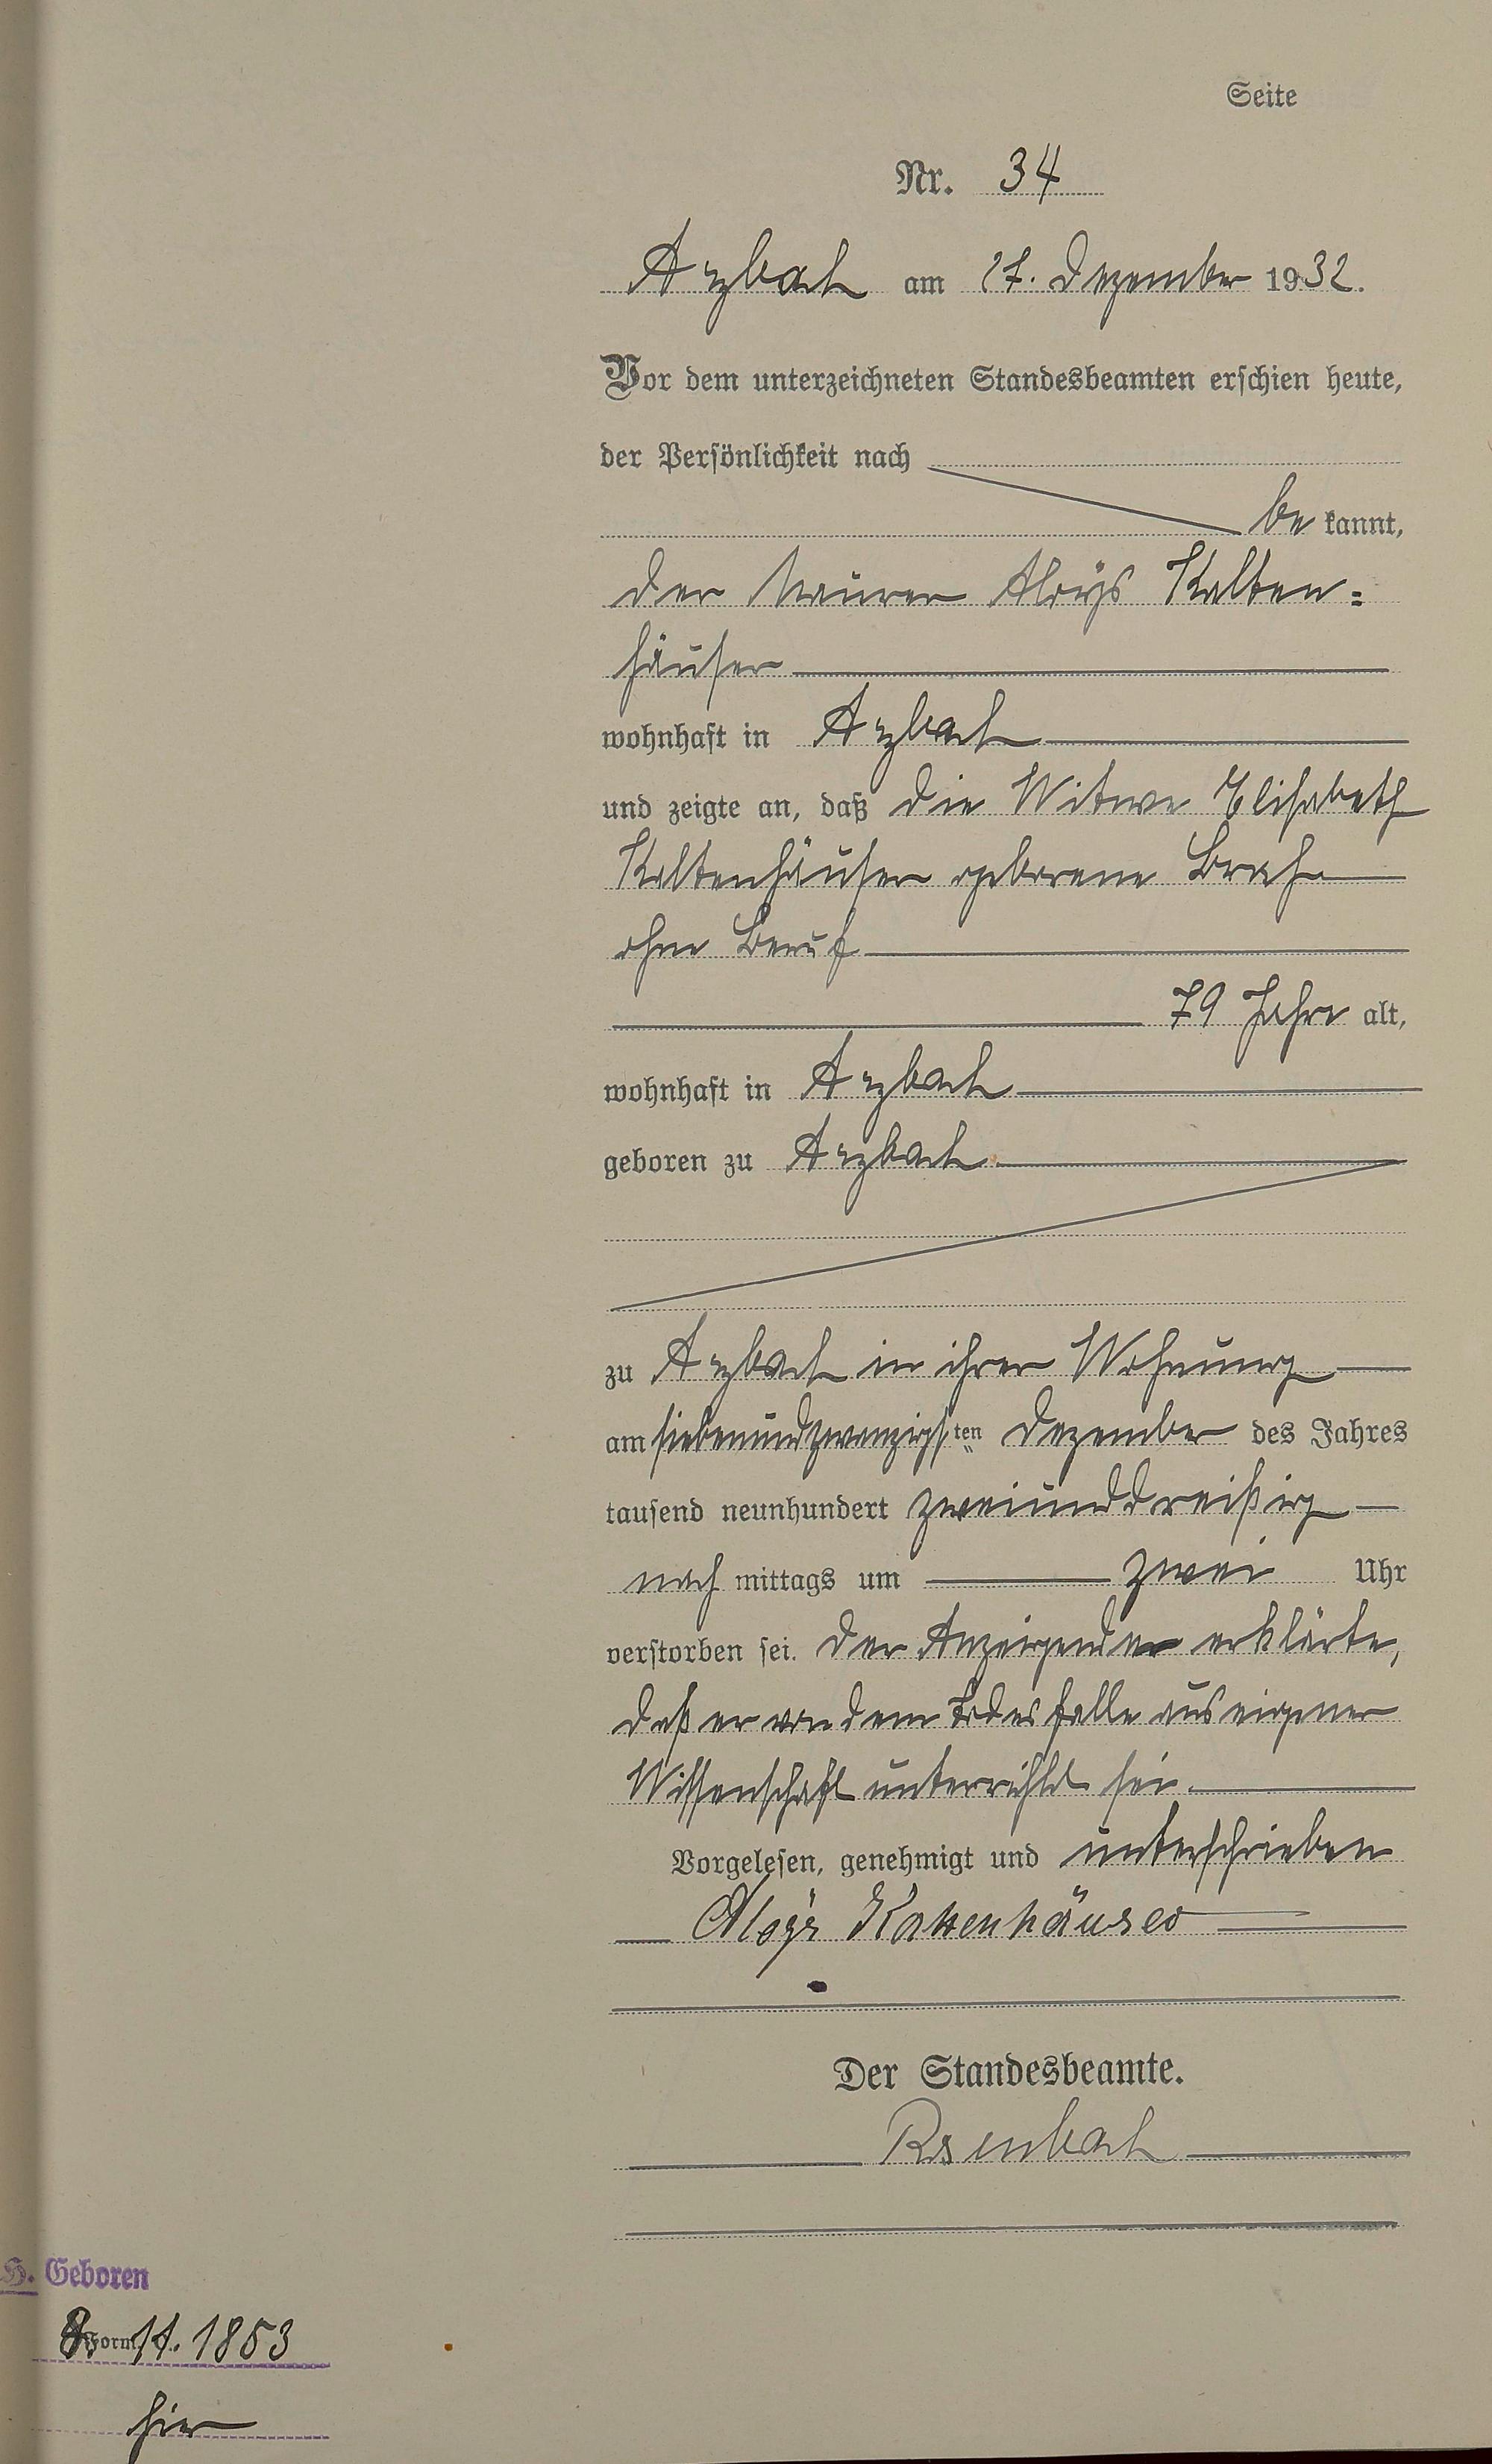 Seite
Nr. 34
Arzbach am 27. Dezember 1932.
Vor dem unterzeichneten Standesbeamten erschien heute,
der Persönlichkeit nach
be kannt,
der Maurer Aloys Kalten=
häuser
wohnhaft in Arzbach
und zeigte an, daß die Witwe Elisabeth
Kaltenhäuser geborene
ohne Beruf
79 Jahre alt,
wohnhaft in Arzbach
geboren zu Arzbach
zu Arzbach in ihrer Wohnung
am siebenundzwanzigsten Dezember des Jahres
tausend neunhundert zweiunddreißig
nach mittags um zwei Uhr
verstorben sei. Der Anzeigende erklärte,
daß er von dem Todesfalle aus eigener
Wissenschaft unterrichtet sei.
Vorgelesen, genehmigt und unterschrieben
Aloys Kaltenhäuser
Der Standesbeamte.
H. Geboren
8. 11. 1853
hier